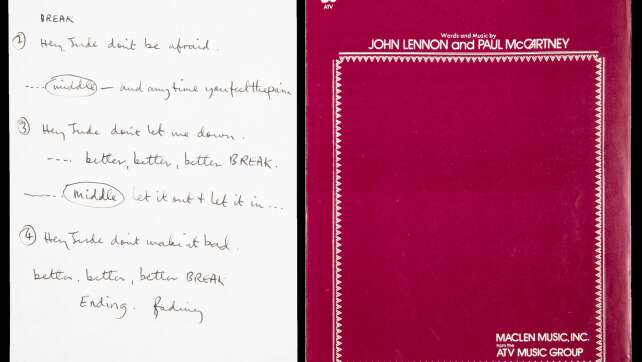 BREAK
② Hey Jude don't be afraid.
.... middle — and any time you feel the pain
③ Hey Jude don't let me down.
---- better, better, better BREAK.
middle let it out & let it in ...
④ Hey Jude don't make it bad.
better. better, better BREAK
Ending. fading
ATV
Words and Music by
JOHN LENNON and PAUL McCARTNEY
MACLEN MUSIC, INC.
from the
ATV MUSIC GROUP